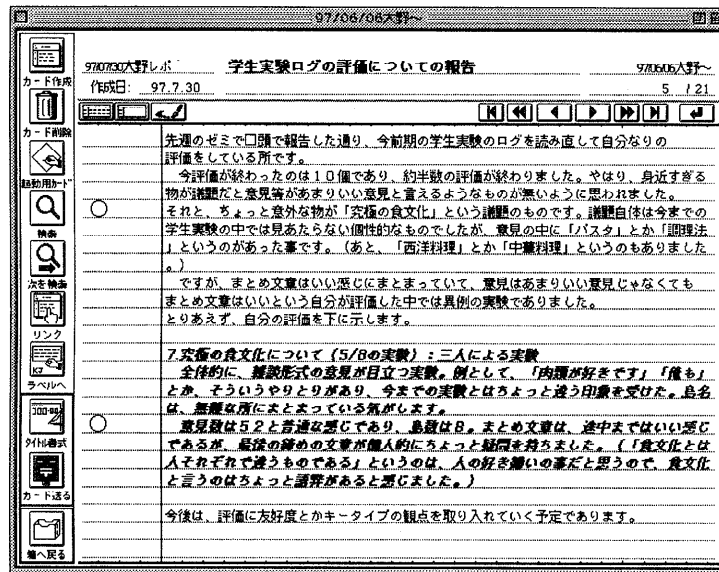 97/06/06大野～
97/07/30大野レポ
学生実験ログの評価についての報告
97/06/06大野～
作成日: 97.7.30
5 / 21
カード作成
カード削除
起動用カード
検索
次を検索
リンク
ラベルへ
タイトル書式
カード送る
棚へ戻る
先週のゼミで口頭で報告した通り、今前期の学生実験のログを読み直して自分なりの
評価をしている所です。
今評価が終わったのは１０個であり、約半数の評価が終わりました。やはり、身近すぎる
物が議題だと意見等があまりいい意見と言えるようなものが無いように思われました。
それと、ちょっと意外な物が「究極の食文化」という議題のものです。議題自体は今までの
学生実験の中では見あたらない個性的なものでしたが、意見の中に「パスタ」とか「調理法
」というのがあった事です。（あと、「西洋料理」とか「中華料理」というのもありました
。）
ですが、まとめ文章はいい感じにまとまっていて、意見はあまりいい意見じゃなくても
まとめ文章はいいという自分が評価した中では異例の実験でありました。
とりあえず、自分の評価を下に示します。
7.究極の食文化について（5/8の実験）：三人による実験
全体的に、雑談形式の意見が目立つ実験。例として、「肉類が好きです」「俺も」
とか、そういうやりとりがあり、今までの実験とはちょっと違う印象を受けた。島名
は、無難な所にまとまっている気がします。
意見数は５２と普通な感じであり、島数は８。まとめ文章は、途中まではいい感じ
であるが、最後の締めの文章が個人的にちょっと疑問を持ちました。（「食文化とは
人それぞれで違うものである」というのは、人の好き嫌いの事だと思うので、食文化
と言うのはちょっと語弊があると感じました。）
今後は、評価に友好度とかキータイプの観点を取り入れていく予定であります。